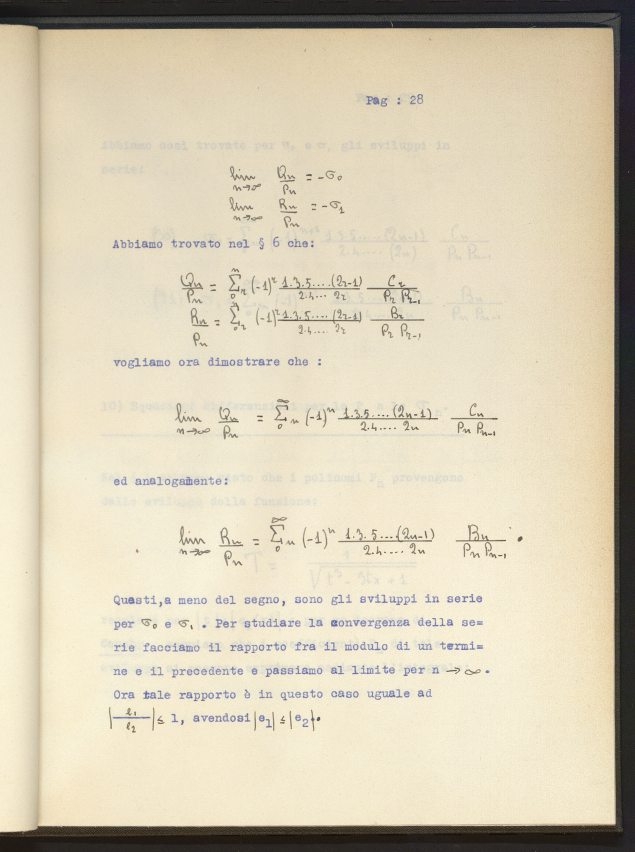 Pag : 28
lim n→∞ Qn/Pn = -σ₀
lim n→∞ Rn/Pn = -σ₁
Abbiamo trovato nel § 6 che:
Qn/Pn = Σ₀ⁿr (-1)ʳ 1.3.5....(2r-1)/2.4.... 2r Cr/Pr Pr-1
Rn/Pn = Σ₀ⁿr (-1)ʳ 1.3.5....(2r-1)/2.4.... 2r Br/Pr Pr-1
vogliamo ora dimostrare che :
lim n→∞ Qn/Pn = Σ₀^∞ n (-1)ⁿ 1.3.5....(2n-1)/2.4.... 2n Cn/Pn Pn-1
ed analogamente:
lim n→∞ Rn/Pn = Σ₀^∞ n (-1)ⁿ 1.3.5....(2n-1)/2.4.... 2n Bn/Pn Pn-1 .
Questi,a meno del segno, sono gli sviluppi in serie
per σ₀ e σ₁ . Per studiare la convergenza della se=
rie facciamo il rapporto fra il modulo di un termi=
ne e il precedente e passiamo al limite per n → ∞ .
Ora tale rapporto è in questo caso uguale ad
|e₁/e₂| ≤ 1, avendosi |e₁| ≤ |e₂|.